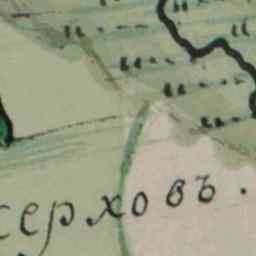 серховъ.